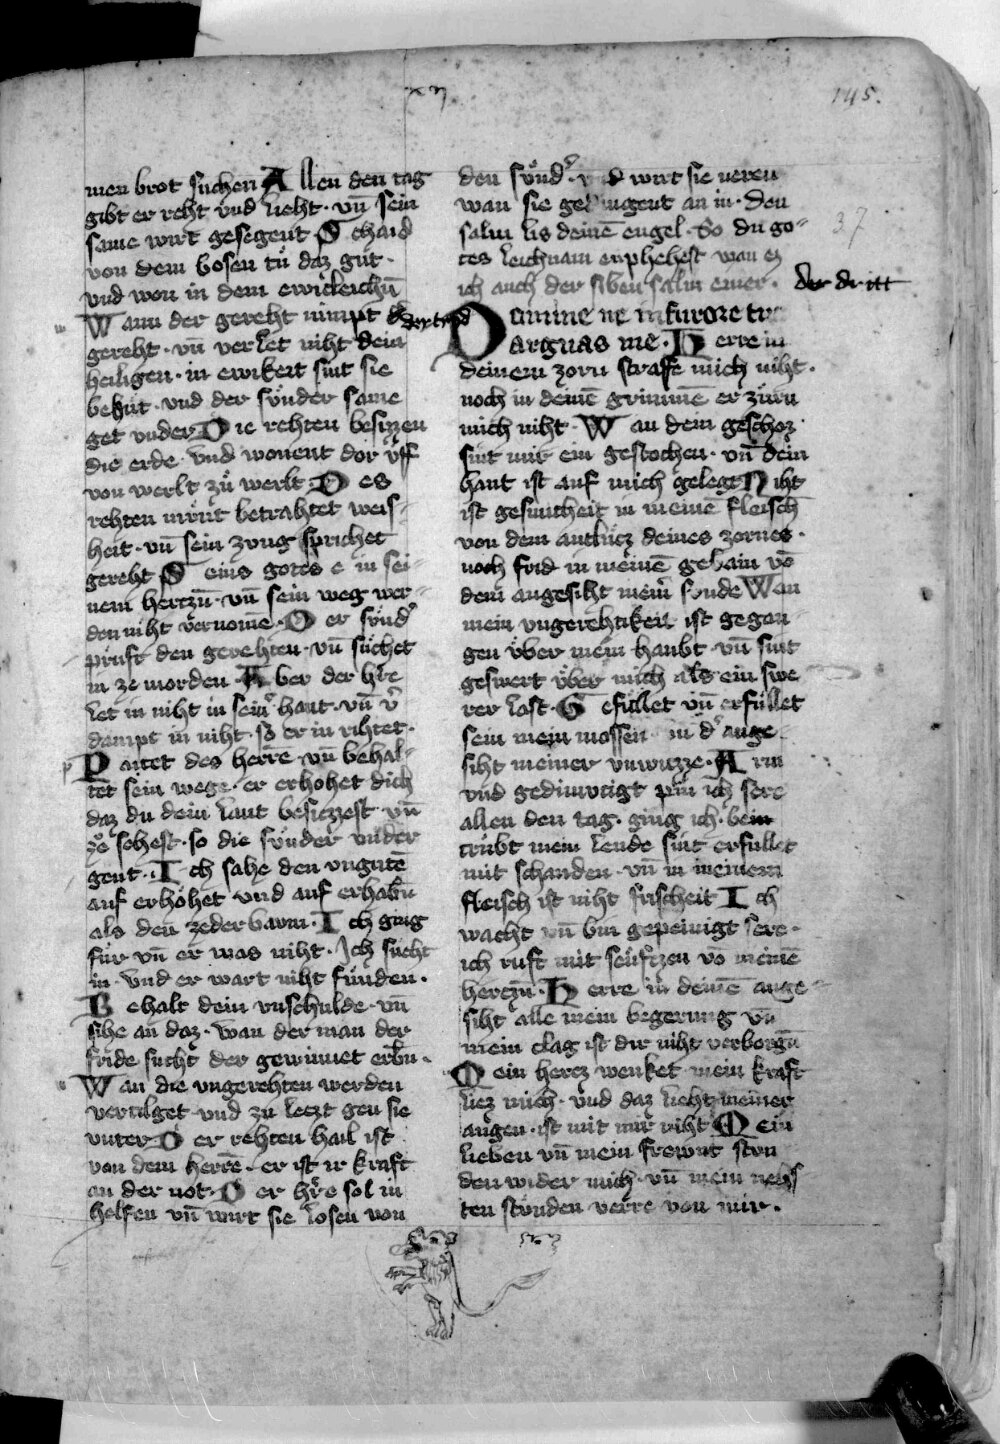 145.
men brot suchen Allen den tag
gibt er reht vnd lieht · vn̄ sein
same wirt gesegent Schaid
von dem bosen tů daz gůt ·
vnd won in dem ewicleichn̄
Wann der gereht nimpt
gereht · vn̄ verlet niht dein
heiligen · in ewikeit sint sie
behůt · vnd der sůnder same
get vnder Die rehten besizzen
die erde · vnd wonent dor ůff
von werlt zů werlt Des
rehten můnt betrahtet weis-
heit · vn̄ sein zvng sprichet
gereht Seins gotes e in sei-
nem hertzn̄ · vn̄ sein weg wer-
den niht vernomē · Der sůnd᾽
průft den gerehten · vn̄ sůchet
in ze morden Aber der h᾽re
let in niht in sein᾽ hant · vn̄ v᾽
dampt in niht · so er in rihtet ·
Paitet des herrē · vn̄ behal-
tet sein wege · er erhohet dich
daz du dein lant besiczzest · vn̄
sehest · so die sůnder vnder
gent · Ich sahe den vngůtē
auf erhöhet vnd auf erhabn̄
als den zederbawm · Ich ging
fůr vn̄ er was niht · Ich sůcht
in · vnd er wart niht fůnden ·
Behalt dein vnschulde · vn̄
sihe an daz · wan der man der
fride sucht der gewinnet erbn̄ ·
Wan die vngerehten werden
vertilget · vnd zu leczt gen sie
vnter Der rehten hail ist
von dem herrē · er ist ir kraft
an der not · Der h᾽re sol in
helfen vn̄ wirt sie losen von
den sůnd᾽ · vnd wirt sie neren
wan sie gedingent an in · Den
salm lis deinē engel · So du go-
tes leichnam enphehest wan ez
ich auch der siben salm einer ·
der dritt
37
Domine ne in furore tuo
arguas me · Herre in
deinem zorn strafe mich niht ·
noch in deinē grimmē erzůrn
mich niht · Wan dein geschoz
sint mir ein gestochen · vn̄ dein
hant ist auf mich gelegt Niht
ist gesuntheit in meinē fleisch
von dem antlůcz deines zornes ·
noch frid in meinē gebain vō
dem angesiht mein᾽ sunde Wan
mein vngerehtikeit ist gegan-
gen ůber mein haubt · vn̄ sint
geswert ůber mich als ein swe
rer last · Gefůllet vn̄ erfůllet
sein mein mossen in d᾽ ange
siht meiner vnwizze · Arm
vnd gedimvtigt pin ich sere
allen den tag · ging ich · bein
trůbt mein lende sint erfullet
mit schanden · vn̄ in meinem
fleisch ist niht frischeit Ich
wacht vn̄ bin gepeinigt sere ·
ich ruft mit sůftzen vō meinē
hertzn̄ · Herre in deinē ange-
siht alle mein begerung vn̄
mein clag ist dir niht verborgn̄
Mein hercz wenket mein kraft
liez mich · vnd daz lieht meiner
augen · ist mit mir niht Mein
lieben vn̄ mein frewnt stvn
den wider mich · vn̄ mein nehs
ten stůnden verre von mir ·